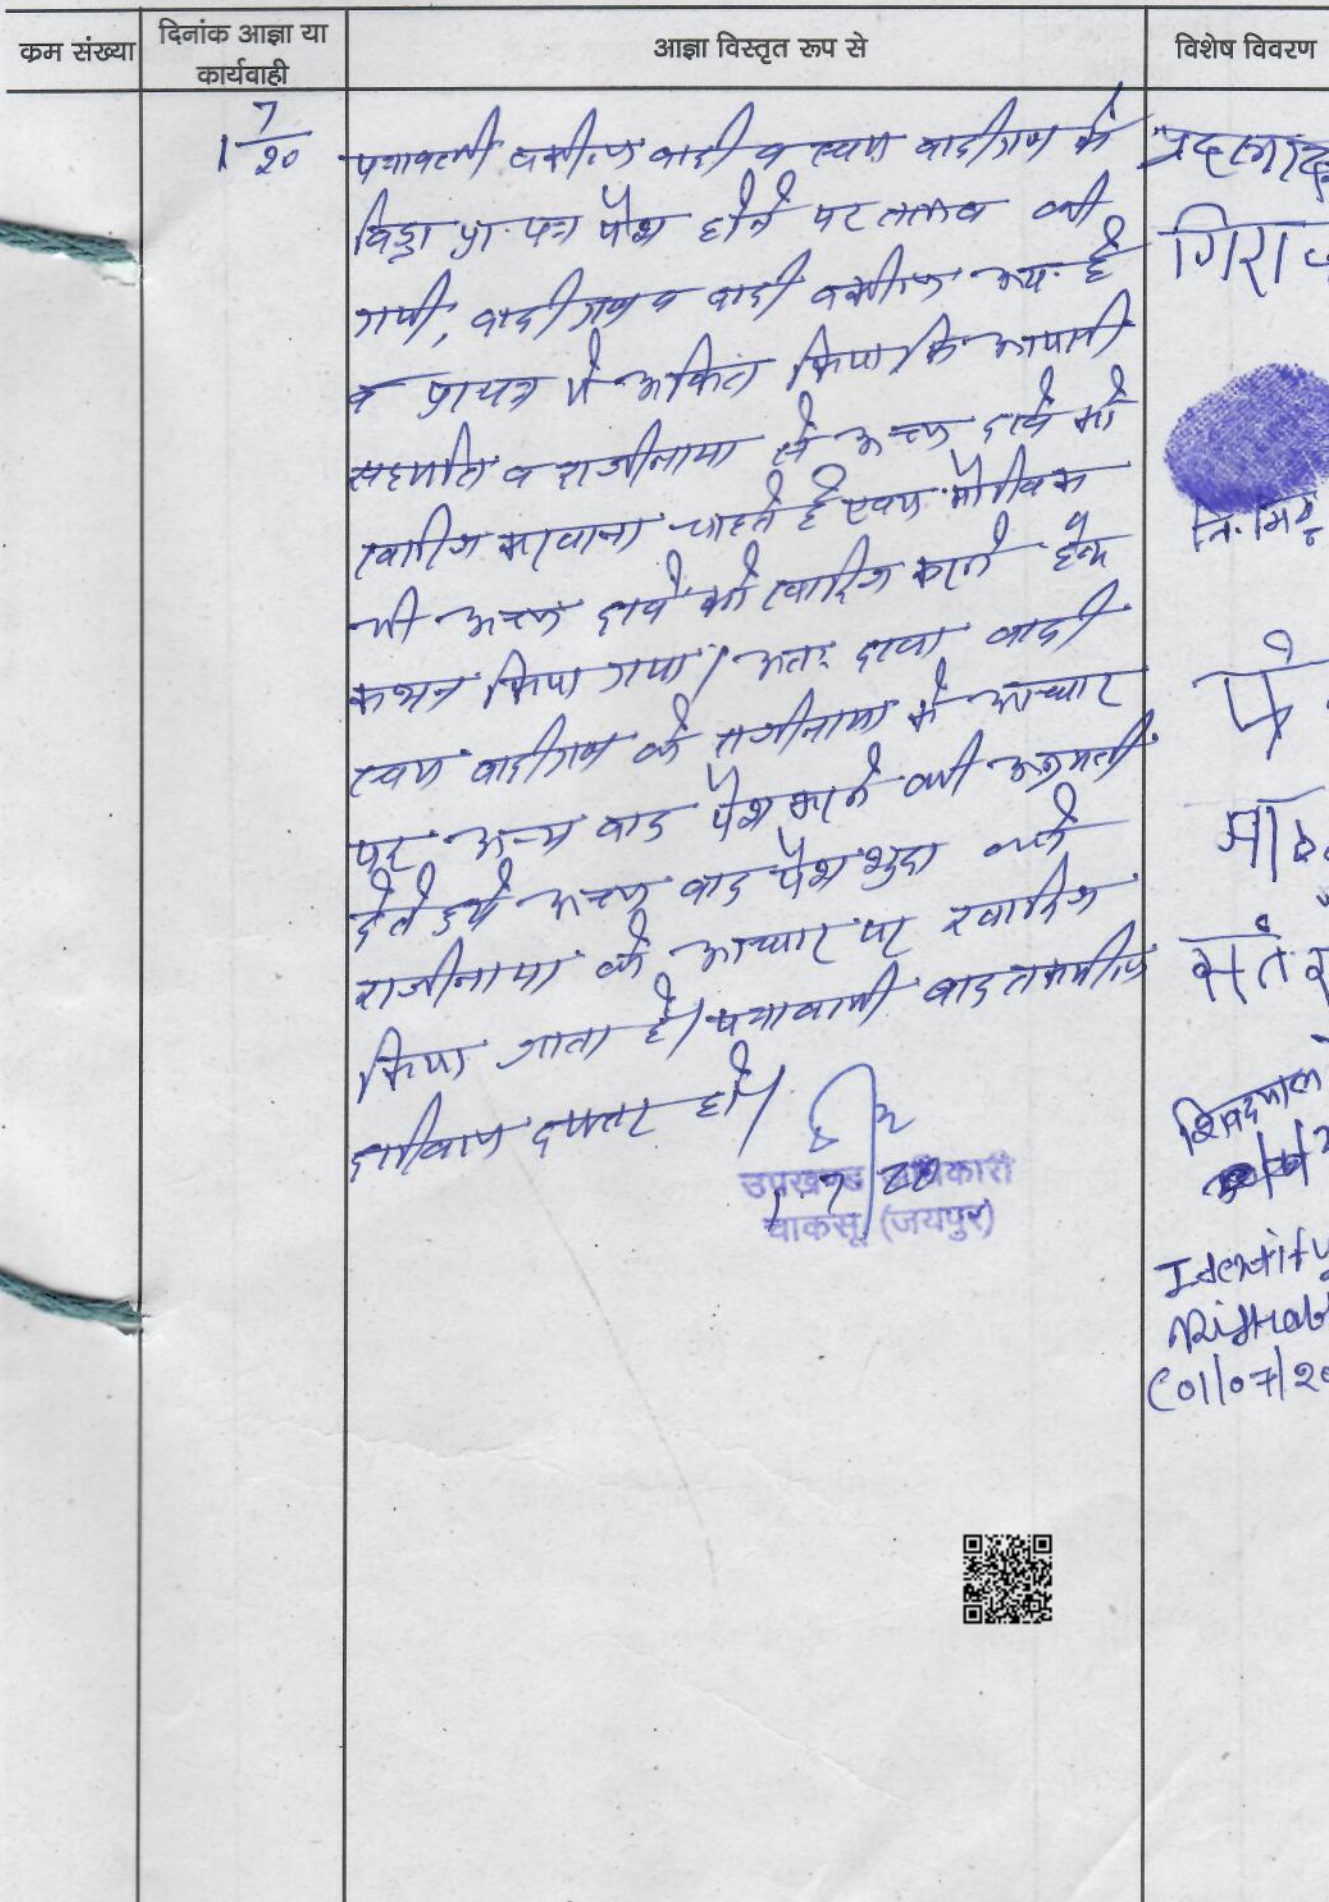 क्रम संख्या
दिनांक आज्ञा या
कार्यवाही
आज्ञा विस्तृत रूप से
विशेष विवरण
1 7/20
पत्रावली वकील वादी व स्वयं वादीगण के
विड्रा प्रा. पत्र पेश होने पर तलब की
गयी, वादीगण व वादी वकील उप. है
व प्रा पत्र में अंकित किया कि आपसी
सहमति व राजीनामा से दावे को
खारिज करवाना चाहते है एवं मौखिक
भी दावे को खारिज करने हेतु
कथन किया गया। अतः दावा वादी
स्वयं वादीगण के राजीनामा के आधार
पर अन्य वाद पेश करने की अनुमती
देते हुये वाद पेश शुदा
राजीनामा के आधार पर खारिज
किया जाता है। पत्रावली बाद तकमील
दाखिल दफ्तर हो।
उपखण्ड अधिकारी
चाकसू (जयपुर)
गिरा
नि.
संत
शिवदयाल
Identify
01/07/20